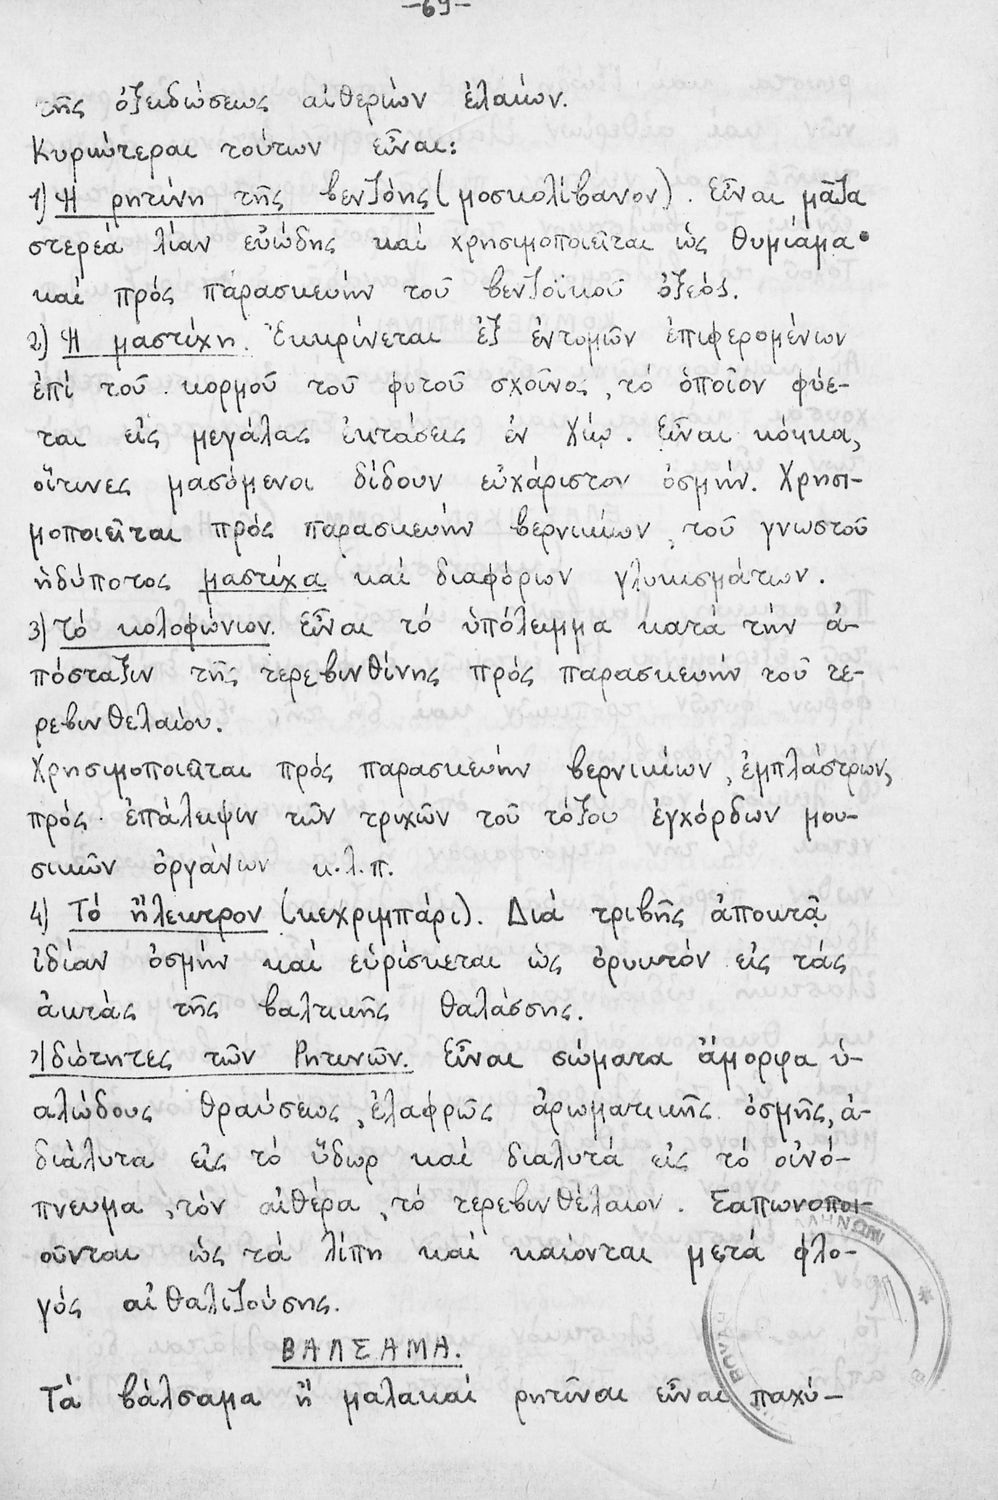 -69-
τῆς ὀξειδώσεως αἰθερίων ἐλαίων.
Κυριώτεραι τούτων εἶναι:
1) Ἡ ρητίνη τῆς βενζόης (μοσκολίβανον). Εἶναι μᾶζα
στερεά λίαν εὐώδης καί χρησιμοποιεῖται ὡς θυμίαμα
καί πρός παρασκευήν τοῦ βενζοϊκοῦ ὀξέος.
2) Ἡ μαστίχη. Ἐκκρίνεται ἐξ ἐντομῶν ἐπιφερομένων
ἐπί τοῦ κορμοῦ τοῦ φυτοῦ σχοῖνος, τό ὁποῖον φύε-
ται εἰς μεγάλας ἐκτάσεις ἐν Χίῳ. Εἶναι κόμμα,
οἵτινες μασόμενοι δίδουν εὐχάριστον ὀσμήν. Χρησι-
μοποιεῖται πρός παρασκευήν βερνικίων, τοῦ γνωστοῦ
ἡδύποτος μαστίχα καί διαφόρων γλυκισμάτων.
3) Τό κολοφώνιον. Εἶναι τό ὑπόλειμμα κατά τήν ἀ-
πόσταξιν τῆς τερεβινθίνης πρός παρασκευήν τοῦ τε-
ρεβινθελαίου.
Χρησιμοποιεῖται πρός παρασκευήν βερνικίων, ἐμπλάστρων,
πρός ἐπάλειψιν τῶν τριχῶν τοῦ τόξου ἐγχόρδων μου-
σικῶν ὀργάνων κ.λ.π.
4) Τό ἤλεκτρον (κεχριμπάρι). Διά τριβῆς ἀποκτᾷ
ἰδίαν ὀσμήν καί εὑρίσκεται ὡς ὀρυκτόν εἰς τάς
ἀκτάς τῆς βαλτικῆς θαλάσσης.
Ἰδιότητες τῶν Ρητινῶν. Εἶναι σώματα ἄμορφα ὑ-
αλώδους θραύσεως, ἐλαφρῶς ἀρωματικῆς ὀσμῆς, ἀ-
διάλυτα εἰς τό ὕδωρ καί διαλυτά εἰς τό οἰνό-
πνευμα, τόν αἰθέρα, τό τερεβινθέλαιον. Σαπωνοποι-
οῦνται ὡς τά λίπη καί καίονται μετά φλο-
γός αἰθαλιζούσης.
ΒΑΛΣΑΜΑ.
Τά βάλσαμα ἤ μαλακαί ρητῖναι εἶναι παχύ-